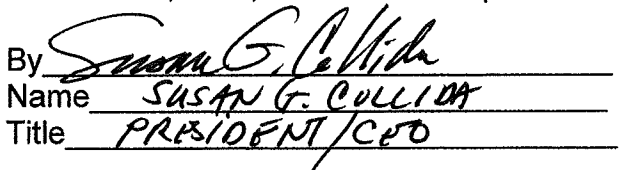 By Susan G. Collida
Name SUSAN G. COLLIDA
Title PRESIDENT/CEO